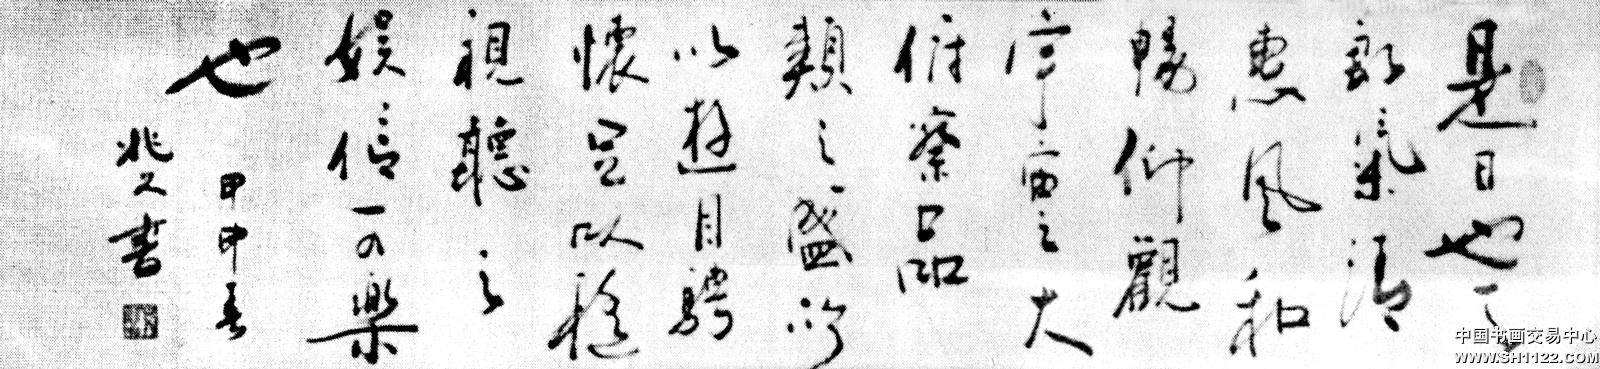 是日也天
朗氣清
惠風和
暢仰觀
宇宙之大
俯察品
類之盛所
以遊目騁
懷足以極
視聽之
娛信可樂
也
甲申春
兆書
中国书画交易中心
WWW.SH1122.COM